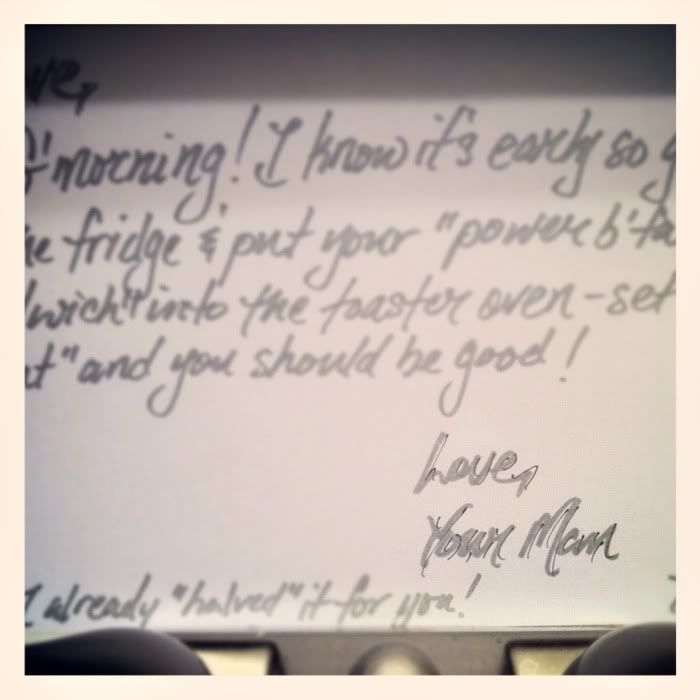 ve,
G'morning! I know it's early so g
he fridge & put your "power b'fa
dwich" into the toaster oven-set
at" and you should be good!
Love,
Your Mom
I already "halved" it for you!